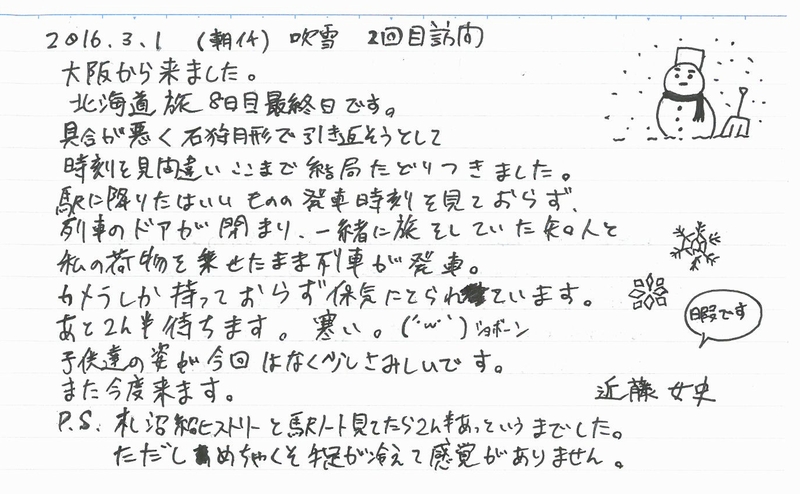 2016.3.1 (朝イチ) 吹雪 2回目訪問
大阪から来ました。
北海道旅8日目最終日です。
具合が悪く石狩月形で引き返そうとして
時刻を見間違いここまで結局たどりつきました。
駅に降りたはいいものの発車時刻を見ておらず、
列車のドアが閉まり、一緒に旅をしていた知人と
私の荷物を乗せたまま列車が発車。
カメラしか持っておらず呆気にとられています。
あと2h半待ちます。寒い。(´・ω・`)ショボーン
子供達の姿が今回はなく少しさみしいです。
また今度来ます。
近藤女史
P.S. 札沼線ヒストリーと駅ノート見てたら2h半あっというまでした。
ただしめちゃくそ手足が冷えて感覚がありません。
暇です